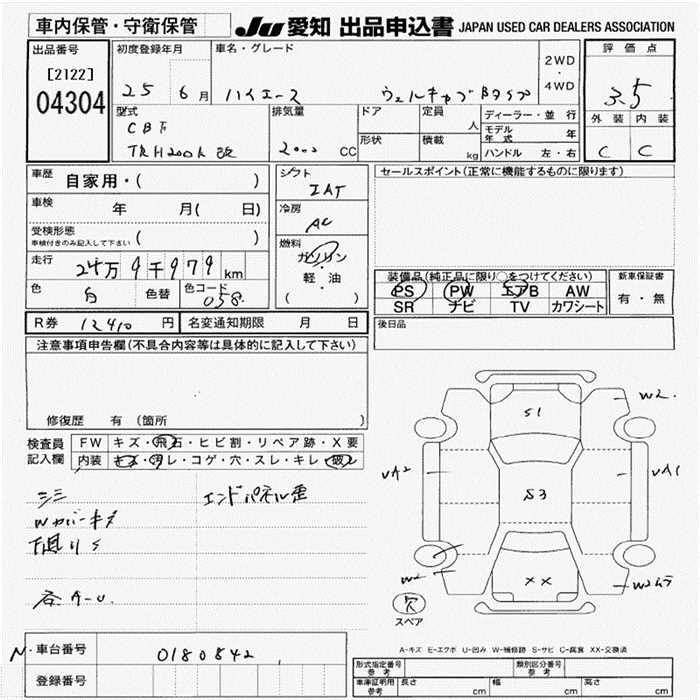 車内保管・守衛保管
JU 愛知 出品申込書 JAPAN USED CAR DEALERS ASSOCIATION
出品番号
[2122]
04304
初度登録年月
25 6月
車名・グレード
ハイエース ウェルキャブBタイプ
2WD
・
4WD
評価点
3.5
外装 内装
C C
型式
CBF
TRH200K 改
排気量
2000 CC
ドア
定員
人
形状
積載
kg
ディーラー・並行
モデル年式 年
ハンドル 左・右
車歴
自家用・( )
車検
年 月( 日)
受検形態
車検付きのみ記入して下さい ( )
走行
24万9千979km
色 白 色替 色コード 058
シフト
IAT
冷房
AC
燃料
ガソリン
・
軽・油
・
( )
セールスポイント(正常に機能するものに限ります)
装備品(純正品に限り○をつけてください)
PS PW エアB AW
SR ナビ TV カワシート
新車保証書
有・無
R券 12410 円 名変通知期限 月 日
後日品
注意事項申告欄(不具合内容等は具体的に記入して下さい)
修復歴 有(箇所 )
検査員記入欄
FW キズ・飛石・ヒビ割・リペア跡・X要
内装 キズ・汚レ・コゲ・穴・スレ・キレ・破レ
エンドパネル歪
下廻りS
A-U.
S1
W2.
UA2
S3
UA1
W2
XX
欠
スペア
A-キズ E-エクボ U-凹み W-補修跡 S-サビ C-腐食 XX-交換済
N・車台番号 0180842
登録番号
形式指定番号 参考
類別区分番号 参考
車庫証明用 参考 長さ cm 幅 cm 高さ cm